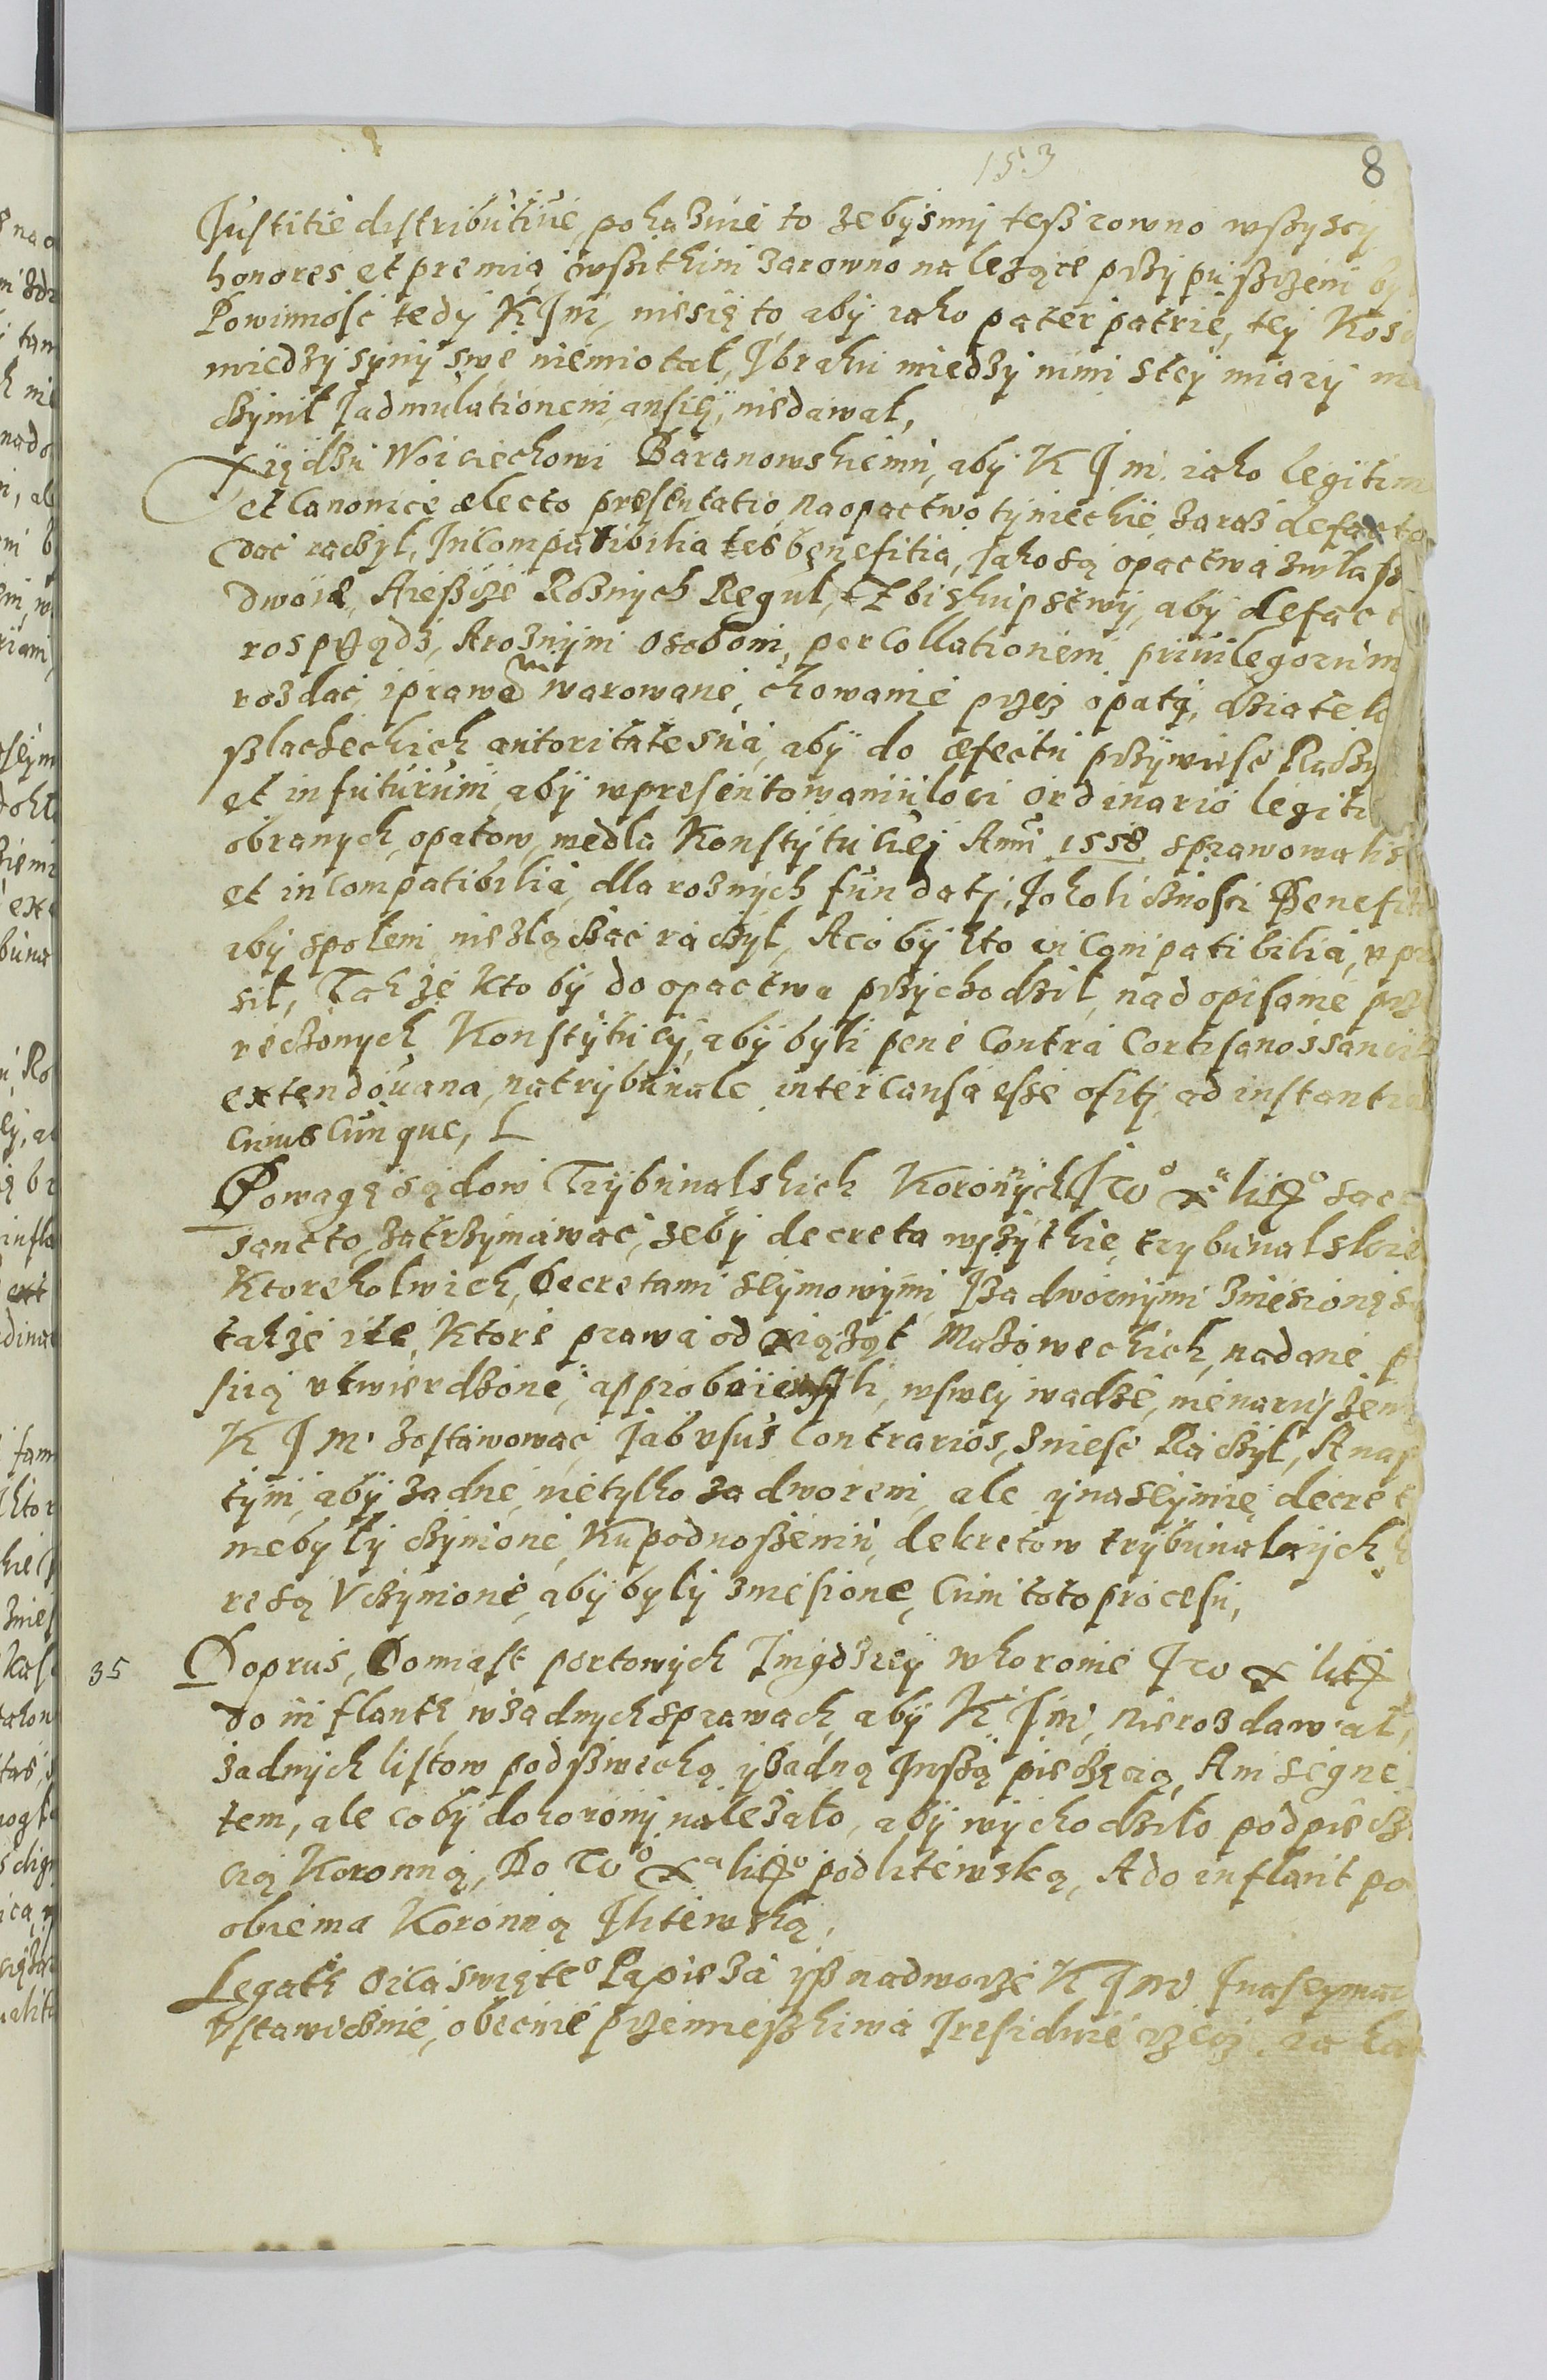 153
8
Justitie distributiue, pokazuie to zebysmy tesz rowno wszyscy
honores et premia wszithim zarowno nalezące przypuszczeni by
Powinnosc tedy K J m, niesię to aby iako pater patrie, tey Kos
miedzy syny swe niemiotał, J braku miedzy nimi stey miary
czynił J admulationem ansiey, niedawał,
Xiędzu Woiciechowi Baranowskiemu, aby K J m. iako legitim
et Canonice electo presentatio na opactwo tynieckie zaraz defacto
dac raczył, Incompatibilia tes benefitia, Jako są opactwa zwłasz
dwoie, Aieszcze Roznych Reguł, Zbiskupstwy, aby defact
rosprządz, Aroznym osobom, per Collationem priuilegorum
rozdac, iprawem warowane, chowanie przez opaty, dziatek
szlacheckich autoritate sua, aby do efectu przywiesc Raczy
et in futurum aby wpresentowaniu loci ordinario legiti
obranych, opatow, wedla Konstytuciey Anni 1558 sprawowal się
et incompatibilia, dla roznych fundatj, Jokolicznosci Benefit
aby społem niezłączac raczył, Aco by kto incompatibilia, vpr
sił, Takze kto by do opactwa przychodził, nad opisanie prz
reczonych Konstytucy, aby byli pene Contra Cortisanos sancit
extendouana, natrybunale inter Causa esse ofitj ad instantia
Cuiuscunque, L
Powagę sądow Trybunalskich Koronnych J W° Xa lit° sacr
sancto, zatrzymawac, zeby decreta wszytkie, trybunalskie
Ktorekolwiek, Decretami Seymowymi, Jza dwornymi zniesione są
takze ite, Ktore prawa od Xiążąt Mazowieckich, nadane p
ścią vtwierdzone, approbuie li, wswey wadze, nienaruszen
K J M. zostawowac, J ab vsus Contrarios, zniesc Raczył, Anap
tym, aby zadne, nietylko za dworem, ale y naseymie decret
niebyły czynione, Ku podnoszeniu, dekretow trybunalnych,
re są Vczynione, aby były zniesione, Cum toto procesu,
35 Doprus, Do miast portowych J indziey wkoronie J W X lit
do inflant, wzadnych sprawach, aby K J m, nierozdawał,
zadnych listow pod sz yzadną Jnszą pieczęcią, Ani segne
tem, ale co by dokorony nalezało, aby wychodziło podpiecz
cią Koronną, Do W° Xa lit° pod litewską, Ado inflant po
obiema Koronną J litewską,
Legath Oica swięte° Papieza ysz nadworze K J M J naseymac
Vstawicznie, obecnie przemieszkiwa J residuie rzecz, ia